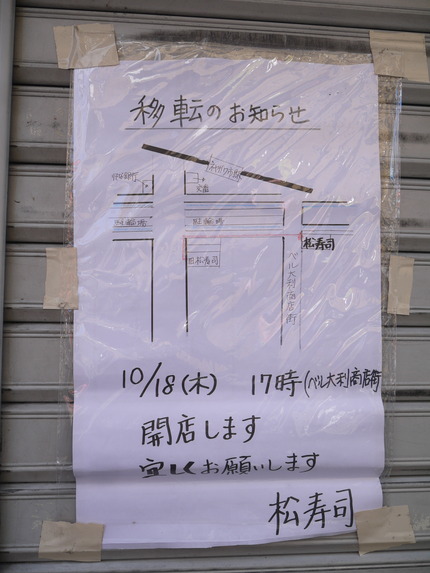 移転のお知らせ
交番
駐輪場
駐輪場
松寿司
旧松寿司
ベル大利商店街
10/18(木) 17時(ベル大利商店街
開店します
宜しくお願いします
松寿司